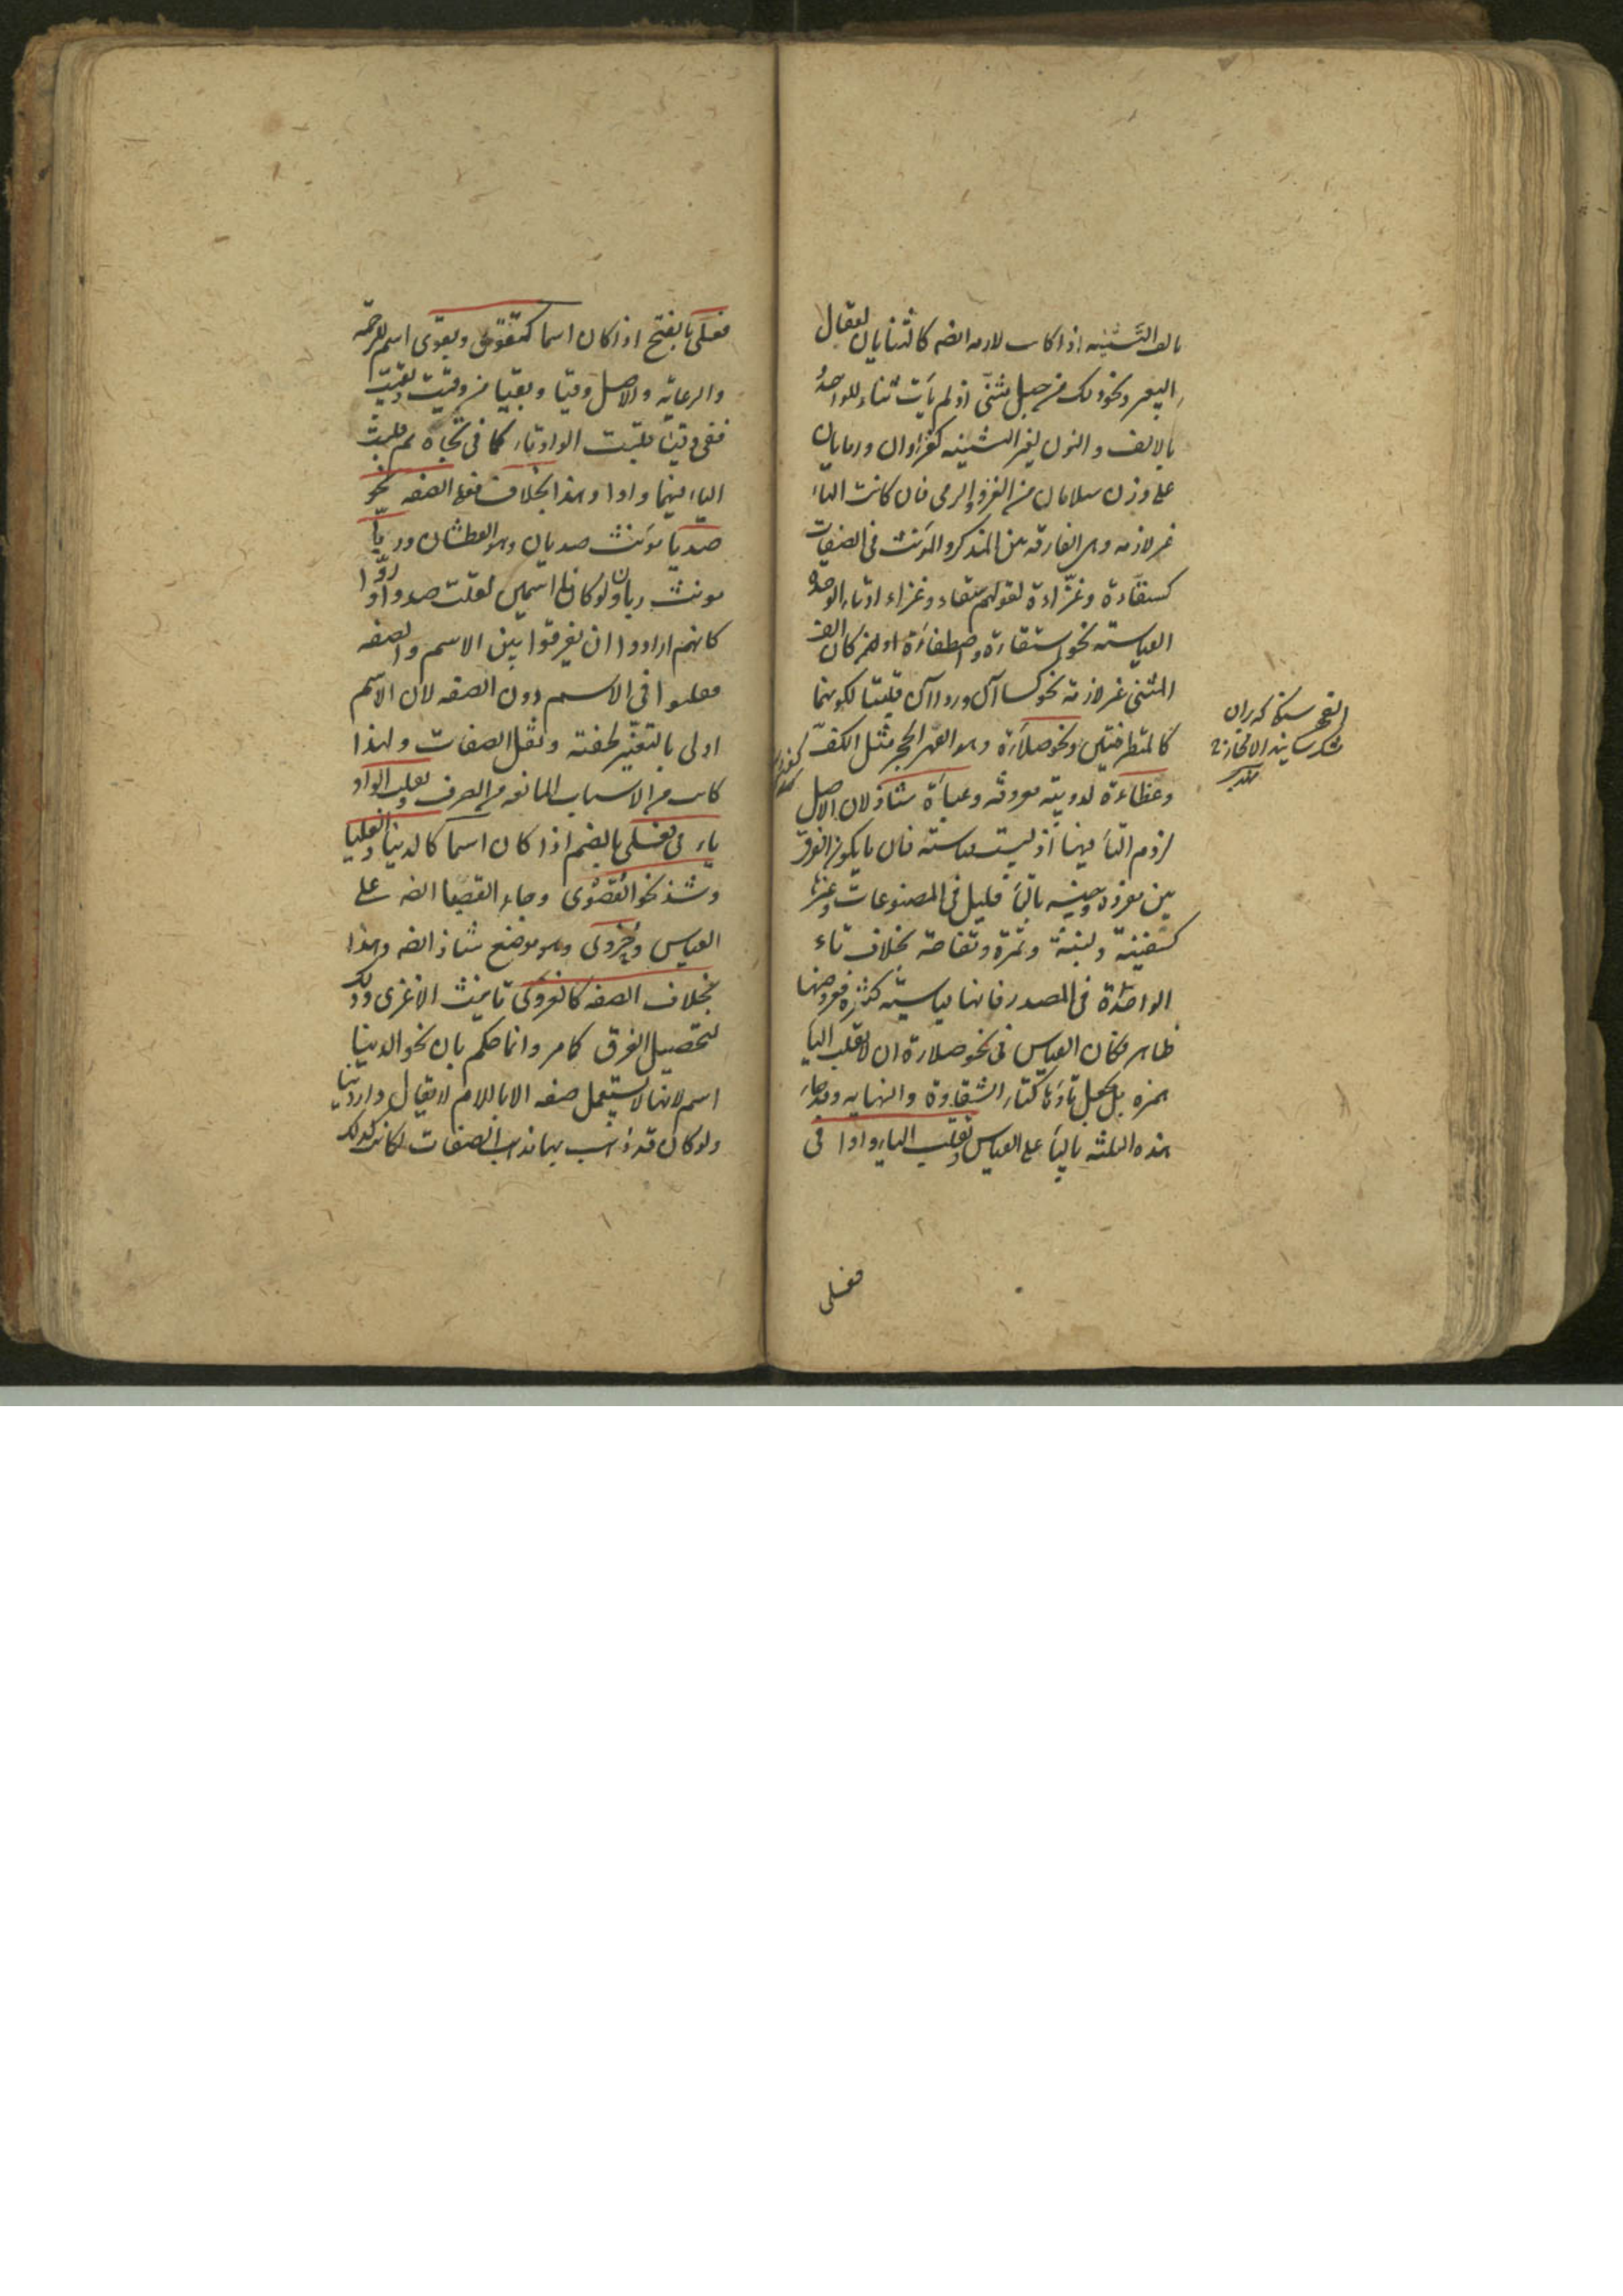 بالف التثنيه اذا كانت لازمه ايضه كالثنايان لعقال
البعير ونحو ذلك من حبل مثنى اذ لم يأت ثناء للواحد
بالالف والنون لغير التثنيه كغزاوان ورمايان
على وزن سلامان من الغزو والرمى فان كانت التاء
غير لازمه وهى الفارقه بين المذكر والمؤنث فى الصفات
كسقاءة وغزاءة لقولهم سقاء وغزاء او تاء الوحدة
القياسيه نحو استقاءة واصطفاءة او هنر كان الف
المثنى غير لازمة نحو كساآن ورداآن قلبتا لكونهما
كالمتطرفتين ونحو صلاءة وهو الفهر الحجر مثل الكف
وعظاءة لدويبة معروفه وعباءة شاذ لان الاصل
لزوم التاء فيها اذ ليست قياسية فان ما يكون الفرق
بين مفرده وجنسه بالتاء قليل فى المصنوعات وغيرها
كسفينة ولبنة وتمرة وتفاحة بخلاف تاء
الواحدة فى المصدر فانها قياسية كثيرة فعروضها
ظاهر فكان القياس فى نحو صلاءة ان لا تقلب الياء
همزه بل يجعل تاؤها كتاء الشقاوة والنهايه وقد جاء
هذه الثلثه بالياء على القياس وتقلب الياء واوا فى
فعلى
الفهر سنگ كه بدان
فعلى بالفتح اذا كان اسما كتقوى وبقوى اسم للرحمة
والرعاية والاصل وقيا وبقيا من وقيت وبقيت
ففى وقيا قلبت الواو تاء كما فى تجاه ثم قلبت
الياء فيهما واوا وهذا بخلاف فعلى الصفه نحو
صديا مؤنث صديان وهو العطشان وريا
مونث ريان ولو كانا اسمين لقلت صدوا وروا
كانهم ارادوا ان يفرقوا بين الاسم والصفه
فقلبوا فى الاسم دون الصفه لان الاسم
اولى بالتغير لخفته وثقل الصفات ولهذا
كانت من الاسباب المانعه من الصرف وتقلب الواو
ياء فى فعلى بالضم اذا كان اسما كالدنيا والعليا
وشذ نحو القصوى وجاء القصيا ايضه على
القياس وحزوى وهو موضع شاذ ايضه وهذا
بخلاف الصفه كالغزوى تانيث الاغزى وذلك
لتحصيل الفرق كما مر وانما حكم بان نحو الدنيا
اسم لانها لا يستعمل صفه الا باللام لا يقال دار دنيا
ولو كان قد ذهب بها مذهب الصفات لكانت كذلك